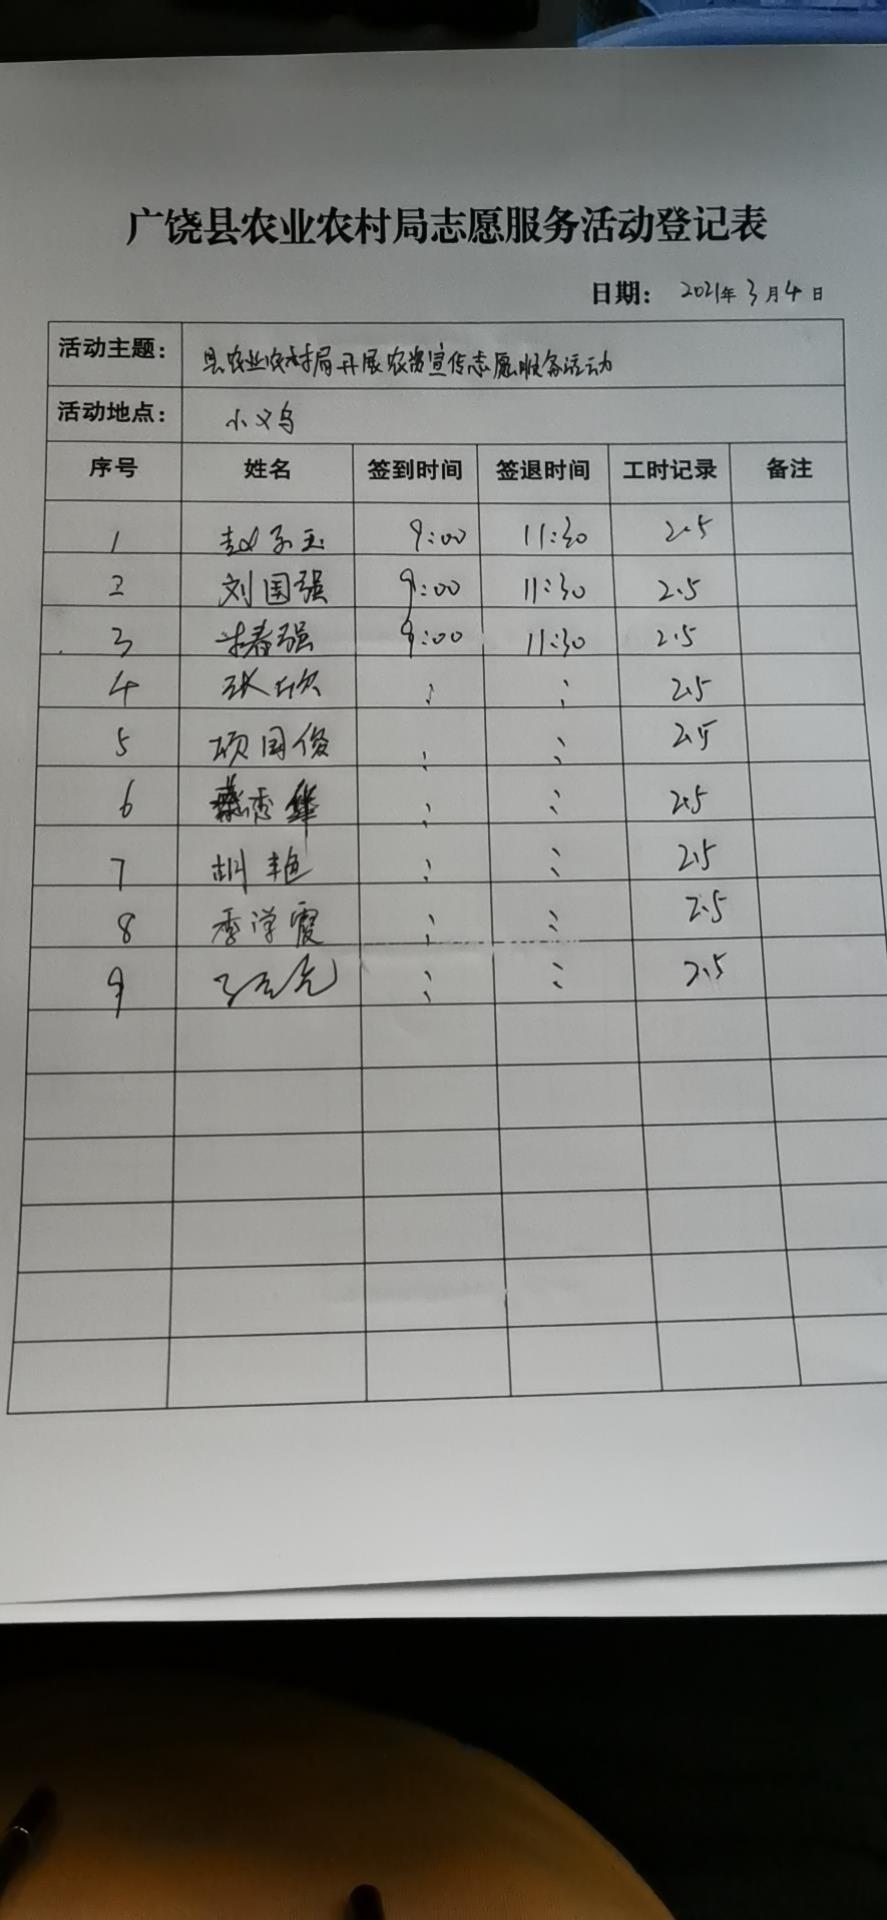 广饶县农业农村局志愿服务活动登记表
日期： 2021年 3 月 4 日
活动主题： 县农业农村局开展农资宣传志愿服务活动
活动地点： 小义乌
序号 姓名 签到时间 签退时间 工时记录 备注
1 赵 玉 9:00 11:30 2.5
2 刘国强 9:00 11:30 2.5
3 春强 9:00 11:30 2.5
4 张欣 : : 2.5
5 国俊 : : 2.5
6 秀华 : : 2.5
7 胡艳 : : 2.5
8 季学霞 : : 2.5
9 : : 2.5